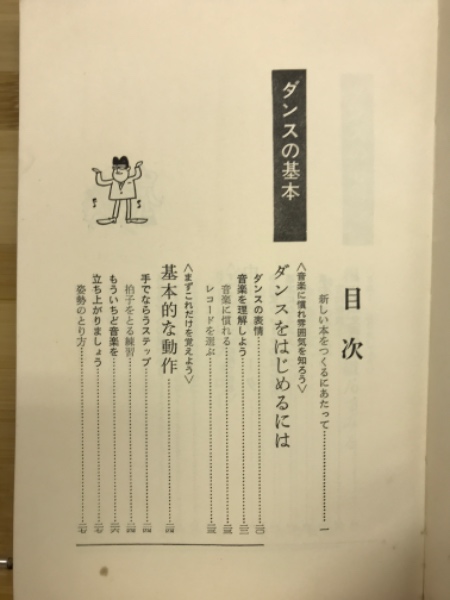 目次
新しい本をつくるにあたって……一
ダンスの基本
〈音楽に慣れ雰囲気を知ろう〉
ダンスをはじめるには
ダンスの表情
音楽を理解しよう
音楽に慣れる
レコードを選ぶ
〈まずこれだけを覚えよう〉
基本的な動作
手でならうステップ
拍子をとる練習
もういちど音楽を
立ち上がりましょう
姿勢のとり方